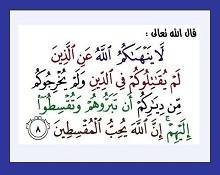 قال الله تعالى :
لَا يَنْهَىٰكُمُ اللَّهُ عَنِ الَّذِينَ
لَمْ يُقَٰتِلُوكُمْ فِي الدِّينِ وَلَمْ يُخْرِجُوكُم
مِّن دِيَٰرِكُمْ أَن تَبَرُّوهُمْ وَتُقْسِطُوٓا
إِلَيْهِمْ ۚ إِنَّ اللَّهَ يُحِبُّ الْمُقْسِطِينَ ٨